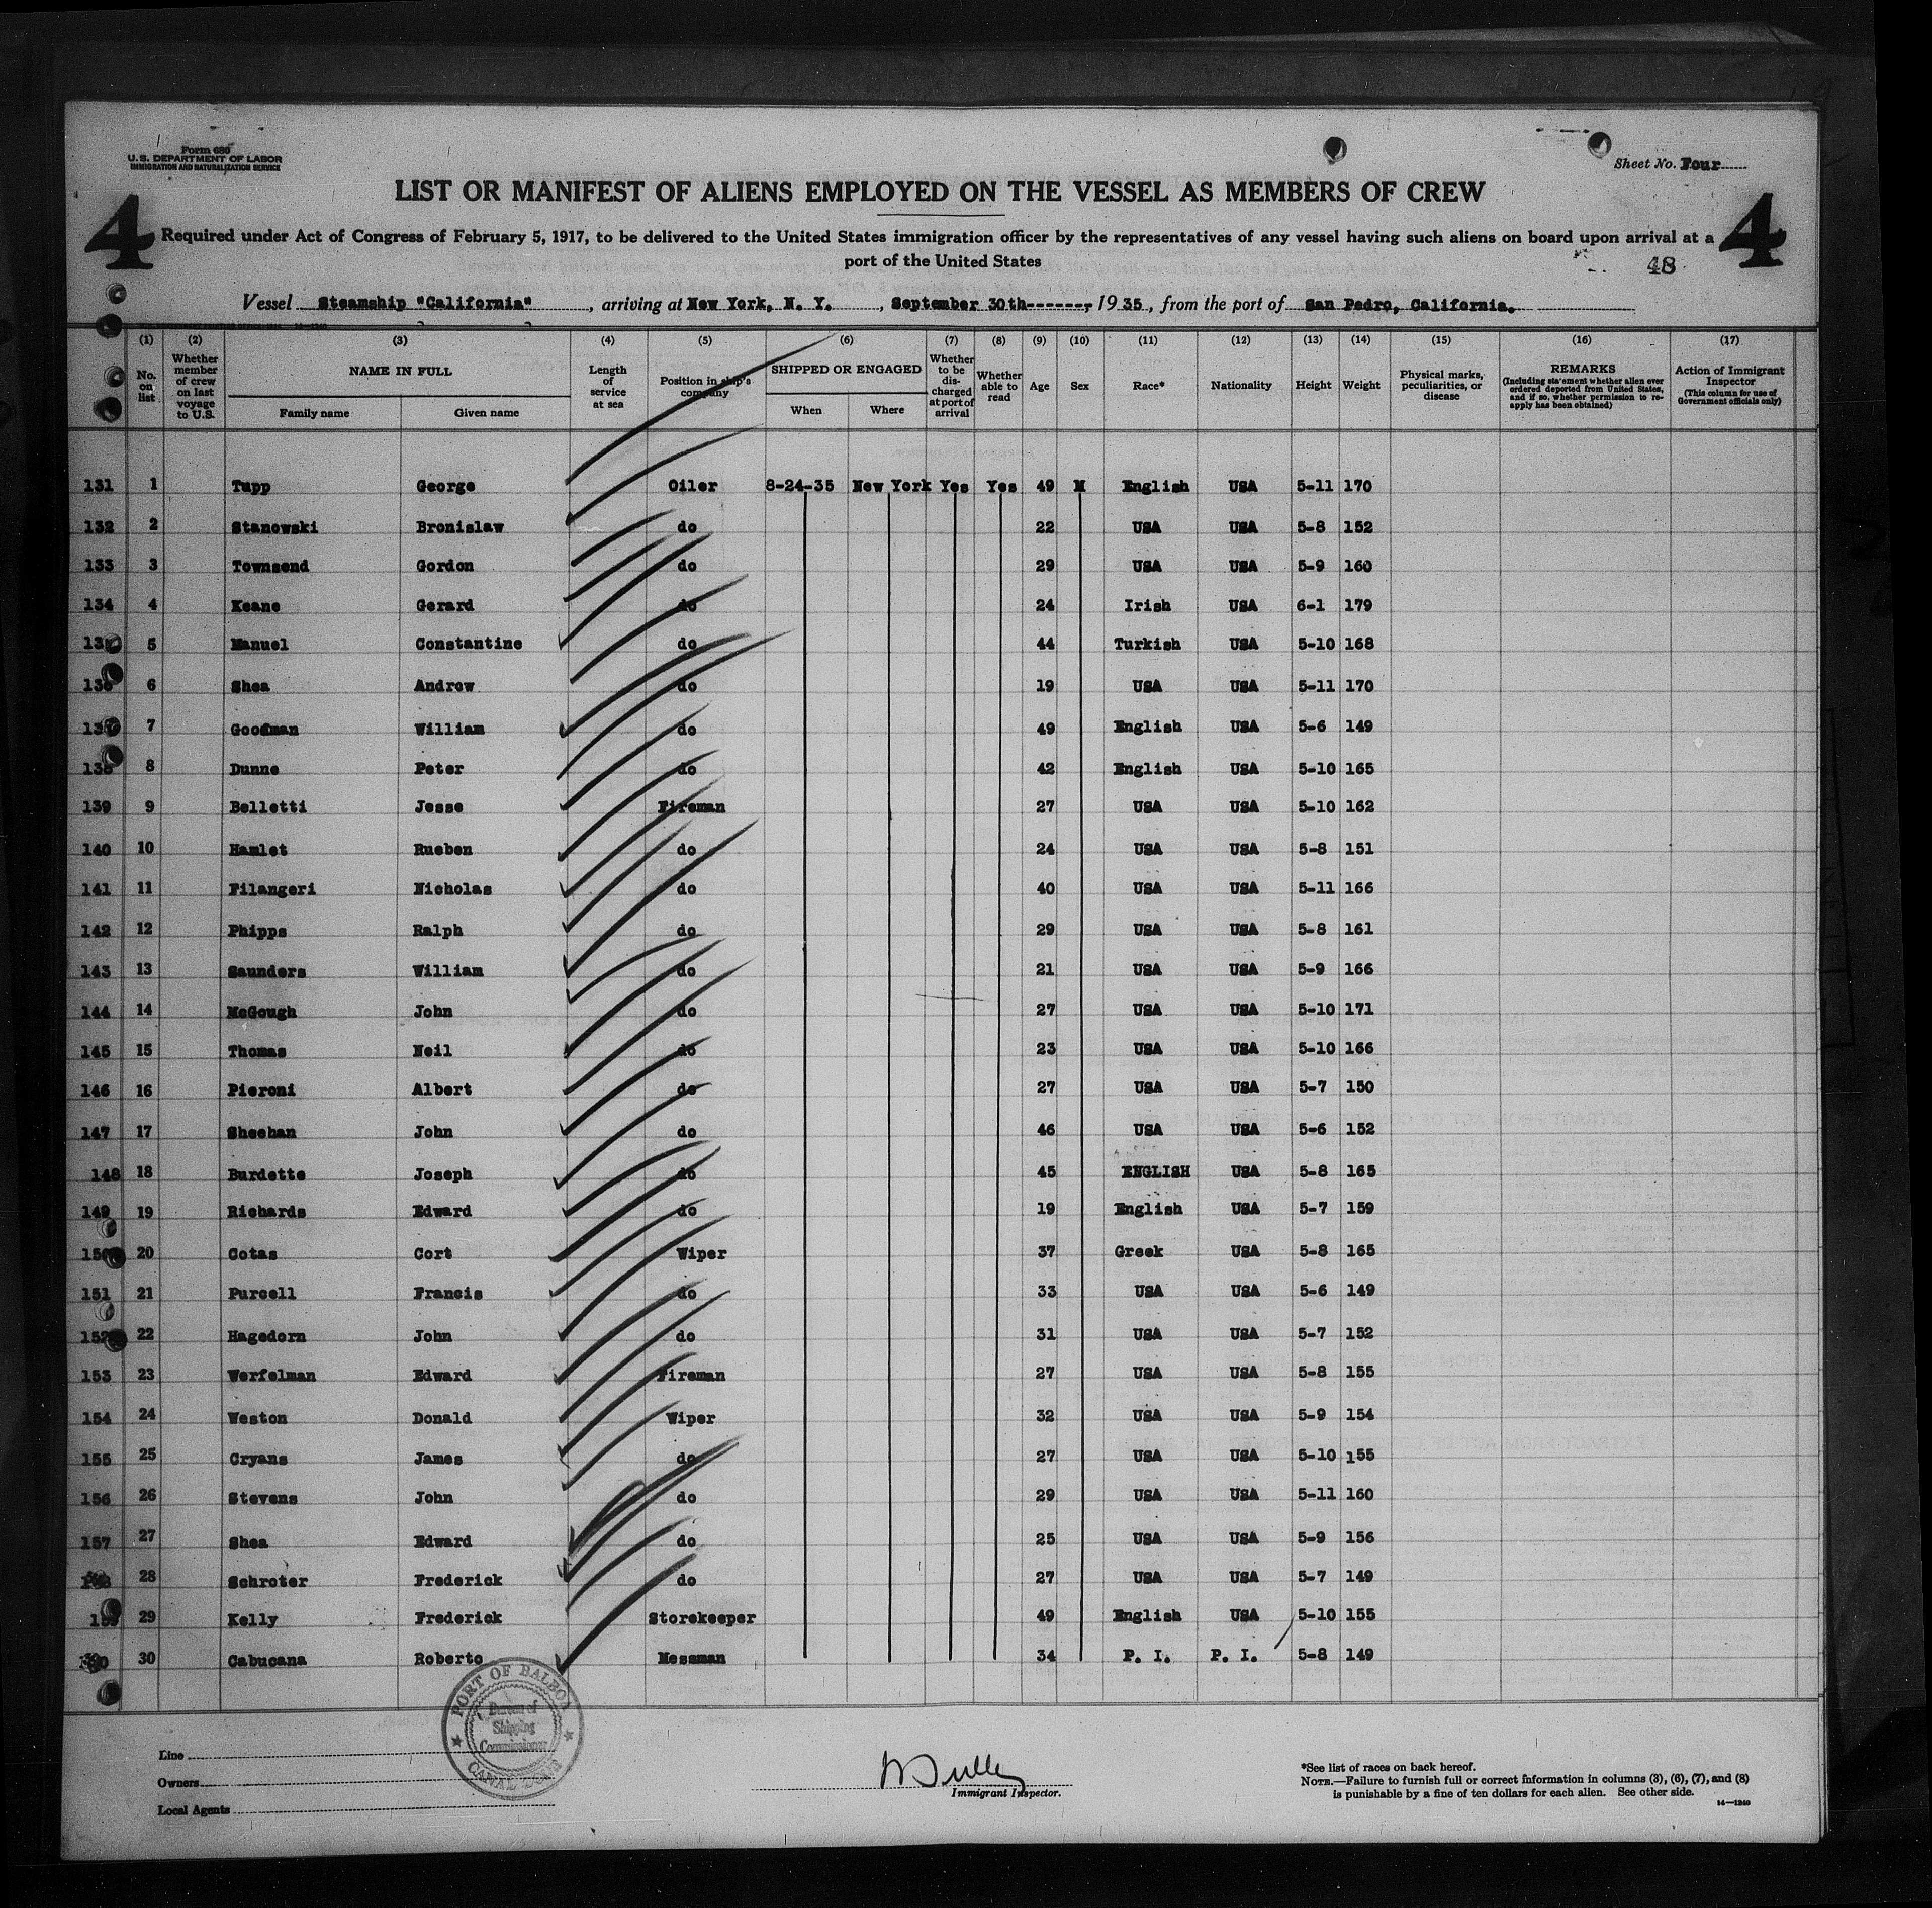 Form 680
U.S. DEPARTMENT OF LABOR
IMMIGRATION AND NATURALIZATION SERVICE
Sheet No. Four
4
4
LIST OR MANIFEST OF ALIENS EMPLOYED ON THE VESSEL AS MEMBERS OF CREW
Required under Act of Congress of February 5, 1917, to be delivered to the United States immigration officer by the representatives of any vessel having such aliens on board upon arrival at a
port of the United States
48
Vessel Steamship "California", arriving at New York, N. Y., September 30th-------, 1935, from the port of San Pedro, California.
(1) No. on list
(2) Whether member of crew on last voyage to U.S.
(3) NAME IN FULL
Family name Given name
(4) Length of service at sea
(5) Position in ship's company
(6) SHIPPED OR ENGAGED
When Where
(7) Whether to be discharged at port of arrival
(8) Whether able to read
(9) Age
(10) Sex
(11) Race*
(12) Nationality
(13) Height
(14) Weight
(15) Physical marks, peculiarities, or disease
(16) REMARKS (Including statement whether alien ever ordered deported from United States, and if so, whether permission to re-apply has been obtained)
(17) Action of Immigrant Inspector (This column for use of Government officials only)
131 1 Tupp George Oiler 8-24-35 New York Yes Yes 49 M English USA 5-11 170
132 2 Stanowski Bronislaw do 22 USA USA 5-8 152
133 3 Townsend Gordon do 29 USA USA 5-9 160
134 4 Keane Gerard do 24 Irish USA 6-1 179
5 Manuel Constantine do 44 Turkish USA 5-10 168
136 6 Shea Andrew do 19 USA USA 5-11 170
7 Goodman William do 49 English USA 5-6 149
138 8 Dunne Peter do 42 English USA 5-10 165
139 9 Belletti Jesse Fireman 27 USA USA 5-10 162
140 10 Hamlet Rueben do 24 USA USA 5-8 151
141 11 Filangeri Nicholas do 40 USA USA 5-11 166
142 12 Phipps Ralph do 29 USA USA 5-8 161
143 13 Saunders William do 21 USA USA 5-9 166
144 14 McGough John do 27 USA USA 5-10 171
145 15 Thomas Neil do 23 USA USA 5-10 166
146 16 Pieroni Albert do 27 USA USA 5-7 150
147 17 Sheehan John do 46 USA USA 5-6 152
148 18 Burdette Joseph do 45 ENGLISH USA 5-8 165
149 19 Richards Edward do 19 English USA 5-7 159
150 20 Cotas Cort Wiper 37 Greek USA 5-8 165
151 21 Purcell Francis do 33 USA USA 5-6 149
152 22 Hagedorn John do 31 USA USA 5-7 152
153 23 Werfelman Edward Fireman 27 USA USA 5-8 155
154 24 Weston Donald Wiper 32 USA USA 5-9 154
155 25 Cryans James do 27 USA USA 5-10 155
156 26 Stevens John do 29 USA USA 5-11 160
157 27 Shea Edward do 25 USA USA 5-9 156
28 Schroter Frederick do 27 USA USA 5-7 149
29 Kelly Frederick Storekeeper 49 English USA 5-10 155
30 Cabucana Roberto Messman 34 P. I. P. I. 5-8 149
PORT OF BALBOA
Bureau of
Shipping
Commissioner
CANAL ZONE
Line
Owners
Local Agents
Immigrant Inspector.
*See list of races on back hereof.
NOTE.—Failure to furnish full or correct information in columns (3), (6), (7), and (8)
is punishable by a fine of ten dollars for each alien. See other side.
14—1240